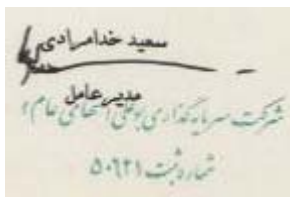 سعید خدامرادی
مدیرعامل
شرکت سرمایه‌گذاری بوعلی (سهامی عام)
شماره ثبت ۵۰۶۲۱